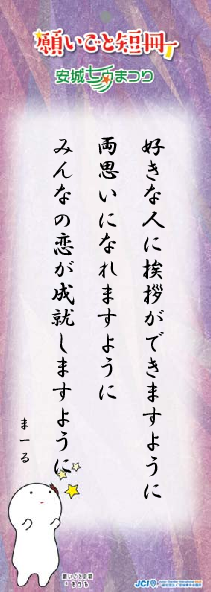 願いごと短冊
安城七夕まつり
好きな人に挨拶ができますように
両思いになれますように
みんなの恋が成就しますように
まーる
願いごと短冊
JCI